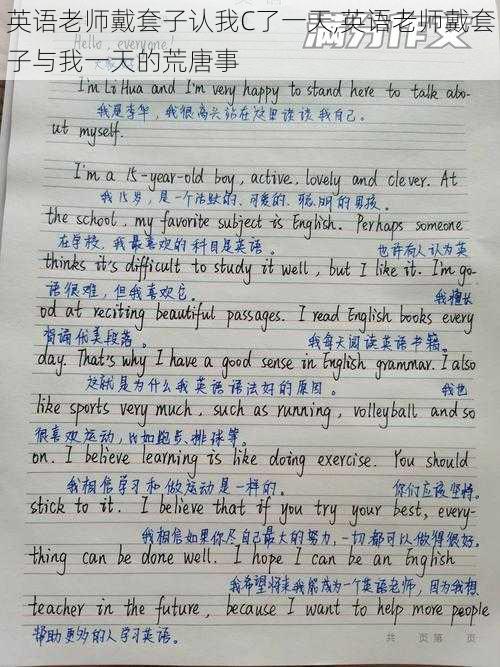 英语老师戴套子认我C了一天,英语老师戴套
子与我一天的荒唐事
满分作文
Hello, everyone!
I'm Li Hua and I'm very happy to stand here to talk abo-
我是李华，我很高兴站在这里谈谈我自己。
ut myself.
I'm a 15-year-old boy, active, lovely and clever. At
我15岁，是一个活跃的、可爱的、聪明的男孩。
the school, my favorite subject is English. Perhaps someone
在学校，我最喜欢的科目是英语。 也许有人认为英
thinks it's difficult to study it well, but I like it. I'm go-
语很难，但我喜欢它。 我擅长
od at reciting beautiful passages. I read English books every
背诵优美段落。 我每天阅读英语书籍。
day. That's why I have a good sense in English grammar. I also
这就是为什么我英语语法好的原因。 我也
like sports very much, such as running, volleyball and so
很喜欢运动，比如跑步、排球等。
on. I believe learning is like doing exercise. You should
我相信学习和做运动是一样的。 你们应该坚持。
stick to it. I believe that if you try your best, every-
我相信如果你尽自己最大的努力，一切都可以做得很好。
thing can be done well. I hope I can be an English
我希望将来我能成为一个英语老师，因为我想
teacher in the future, because I want to help more people
帮助更多的人学习英语。
共 页 第 页